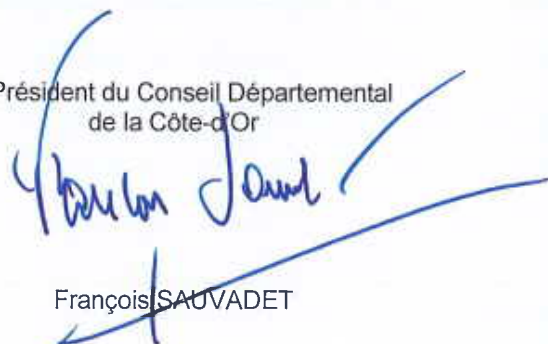 Président du Conseil Départemental
de la Côte-d'Or
François SAUVADET